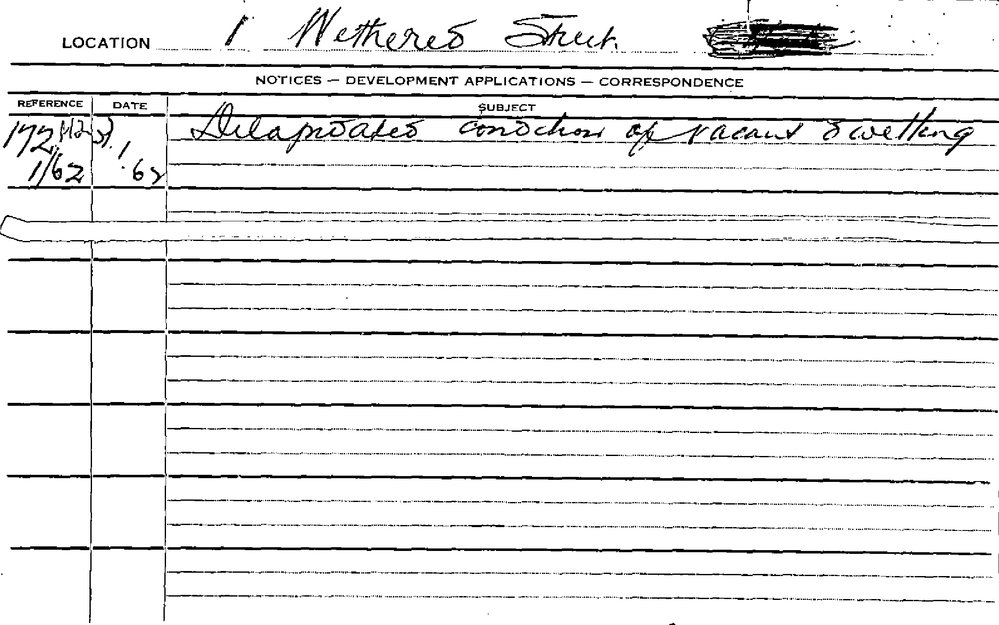 LOCATION 1 Wethered Street
NOTICES — DEVELOPMENT APPLICATIONS — CORRESPONDENCE
REFERENCE DATE SUBJECT
Delapidated condition of vacant dwelling
1/62 .62